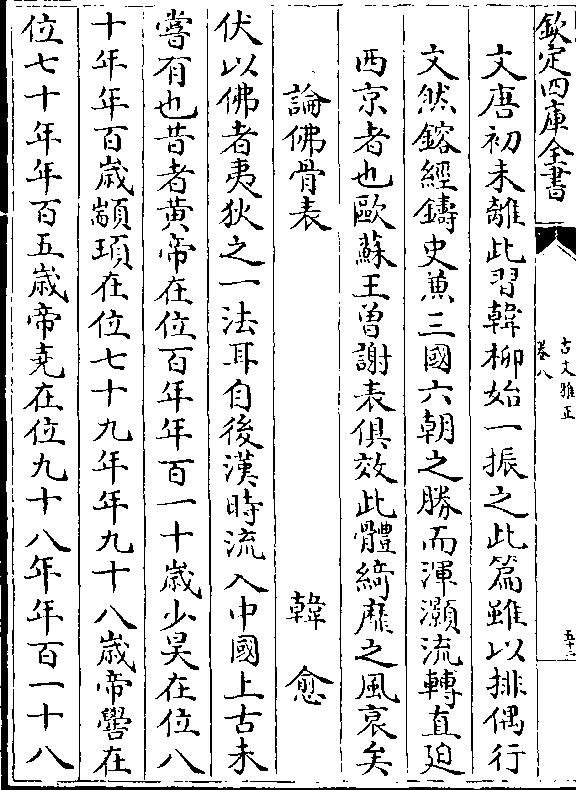 欽定四庫全書
古文雅正
卷八
五十三
文唐初未離此習韓柳始一振之此篇雖以排偶行
文然鎔經鑄史兼三國六朝之勝而渾灝流轉直廹
西京者也歐蘇王曾謝表俱效此體綺靡之風衰矣
論佛骨表
韓愈
伏以佛者夷狄之一法耳自後漢時流入中國上古未
嘗有也昔者黃帝在位百年年百一十歲少昊在位八
十年年百歲顓頊在位七十九年年九十八歲帝嚳在
位七十年年百五歲帝堯在位九十八年年百一十八